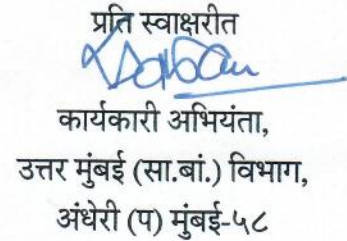 प्रति स्वाक्षरीत
कार्यकारी अभियंता,
उत्तर मुंबई (सा.बां.) विभाग,
अंधेरी (प) मुंबई-५८